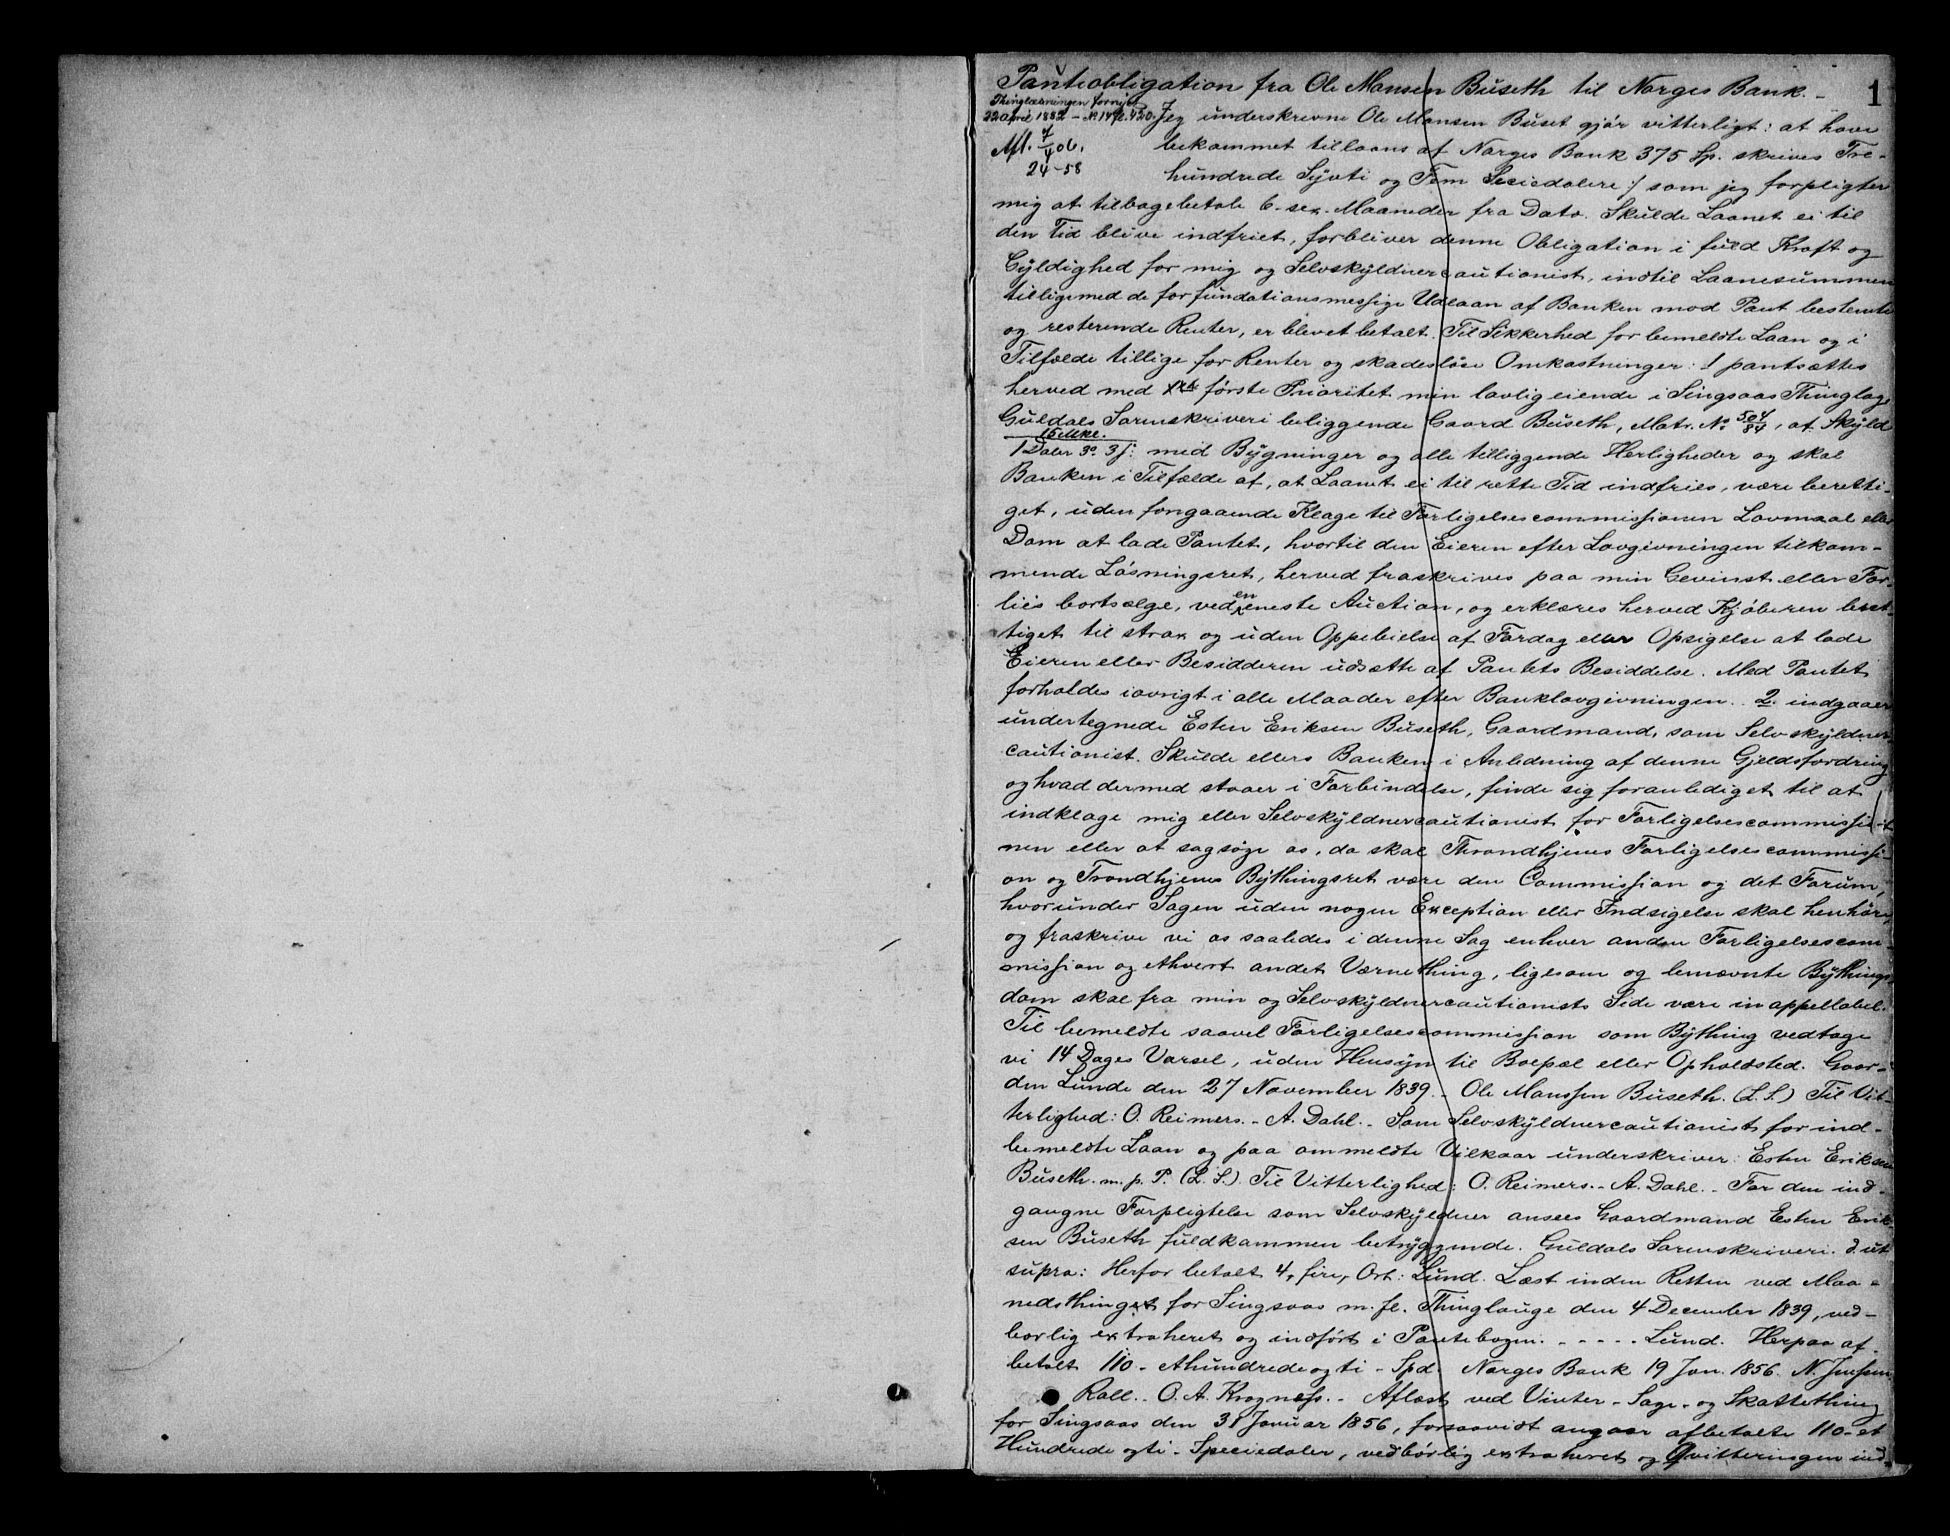 Pantobligation fra Ole Monsen Buseth til Norges Bank. - 1
Thinglæsningen fornyet
22 April 1882 - No 14 p. 420. Jeg underskrevne Ole Monsen Buset gjør vitterligt: at have
Afl. 7/4 06. bekommet tillaans af Norges Bank 375 Sp. skrives Tre-
24-58 hundrede Syvti og Fem Speciedalere :/ som jeg forpligter
mig at tilbagebetale 6. sex. Maaneder fra Dato. Skulde Laanet ei til
den Tid blive indfriet, forbliver denne Obligation i fuld Kraft og
Gyldighed for mig og Selvskyldnercautionist, indtil Laanesummen
tilligemed de for fundationsmessige Udlaan af Banken mod Pant bestemte
og resterende Renter, er blevet betalt. Til Sikkerhed for bemeldte Laan og i
Tilfælde tillige for Renter og skadesløse Omkostninger: 1 pantsættes
herved med 1ste første Prioritet min lovlig eiende i Singsaas Thinglag
Guldals Sorenskriveri beliggende Gaard Buseth, Matr. No 504/84, af Skyld
15 Mkl.
1 Daler 3o 3s: med Bygninger og alle tilliggende Herligheder og skal
Banken i Tilfælde af, at Laanet ei til rette Tid indfries, være beretti-
get, uden forgaaende Klage til Forligelsescommissionen Lovmaal eller
Dom at lade Pantet, hvortil den Eieren efter Lovgivningen tilkom-
mende Løsningsret, herved fraskrives paa min Gevinst eller For-
liis bortsælge, ved en eneste Auction, og erklæres herved Kjøberen beret-
tiget til strax og uden Oppebielse af Fardag eller Opsigelse at lade
Eieren eller Besidderen udsætte af Pantets Besiddelse. Med Pantet
forholdes iøvrigt i alle Maader efter Banklovgivningen. 2. indgaaer
undertegnede Esten Eriksen Buseth, Gaardmand, som Selvskyldner
cautionist. Skulde ellers Banken i Anledning af denne Gjeldsfordring
og hvad dermed staaer i Forbindelse, finde sig foranlediget til at
indklage mig eller Selvskyldnercautionist for Forligelsescommissio-
nen eller at sagsøge os, da skal Throndhjems Forligelsescommissi-
on og Trondhjems Bythingsret være den Commission og det Forum,
hvorunder Sagen uden nogen Exception eller Indsigelse skal henhøre,
og fraskrive vi os saaledes i denne Sag enhver anden Forligelsescom-
mission og ethvert andet Værnething, ligesom og benævnte Bythings
dom skal fra min og Selvskyldnercautionists Side være inappellabel.
Til bemeldte saavel Forligelsescommission som Bything vedtage
vi 14 Dages Varsel, uden Hensyn til Boepæl eller Opholdsted. Gaar-
den Lunde den 27 November 1839. - Ole Monssen Buseth. (L.S.) Til Vit-
terlighed: O. Reimers. - A. Dahl. - Som Selvskyldnercautionist for ind-
bemeldte Laan og paa ommeldte Vilkaar underskriver: Esten Eriksen
Buseth. m. p. P. (L.S.) Til Vitterlighed: O. Reimers. - A. Dahl. - For den ind-
gangne Forpligtelse som Selvskyldner ansees Gaardmand Esten Erik
sen Buseth fuldkommen betryggende. Guldals Sorenskriveri. d. ut
supra: Herfor betalt 4, fire, Ort: Lund. Læst inden Retten ved Maa-
nedsthinget for Singsaas m. fl. Thinglauge den 4 December 1839, ved-
børlig extraheret og indført i Pantebogen. - - - - - Lund. Herpaa af-
betalt 110 - ethundrede og ti - Spd. Norges Bank 19 Jan. 1856. N. Jenssen
Roll. - O. A. Krognæss. - Aflæst ved Vinter - Sage - og Skattething
for Singsaas den 31 Januar 1856, forsaavidt angaar afbetalte 110 - et
Hundrede og ti - Speciedaler, vedbørlig extraheret og Qvitteringen ind-